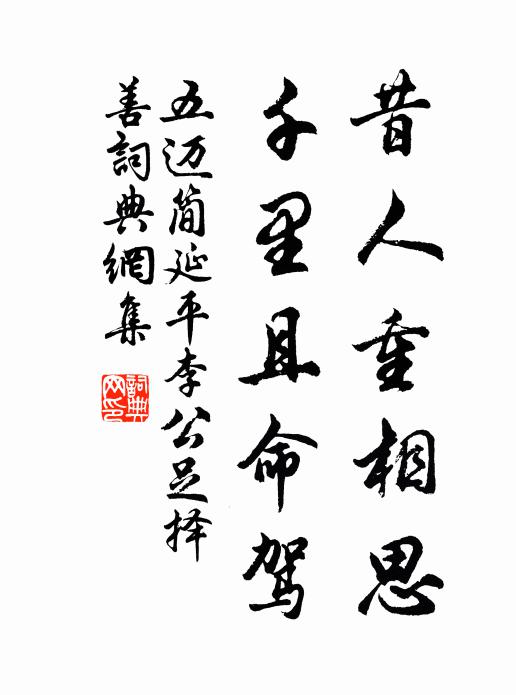 昔人重相思
千里且命驾
五迈简延平李公足择
善詞典網集
詞典
网印